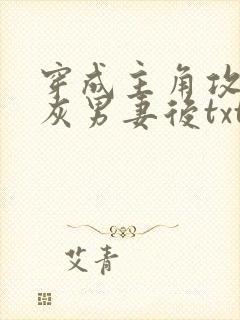 穿成主角攻
灰男妻後txt
艾青